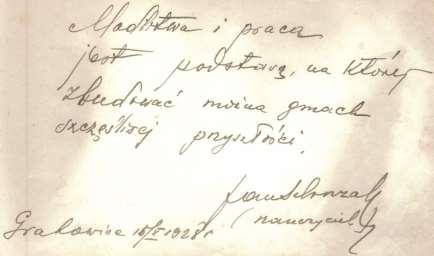 Modlitwa i praca
jest podstawą, na której
zbudować można gmach
szczęśliwej przyszłości.
(nauczyciel)
Grabowice 16/V 1928 r